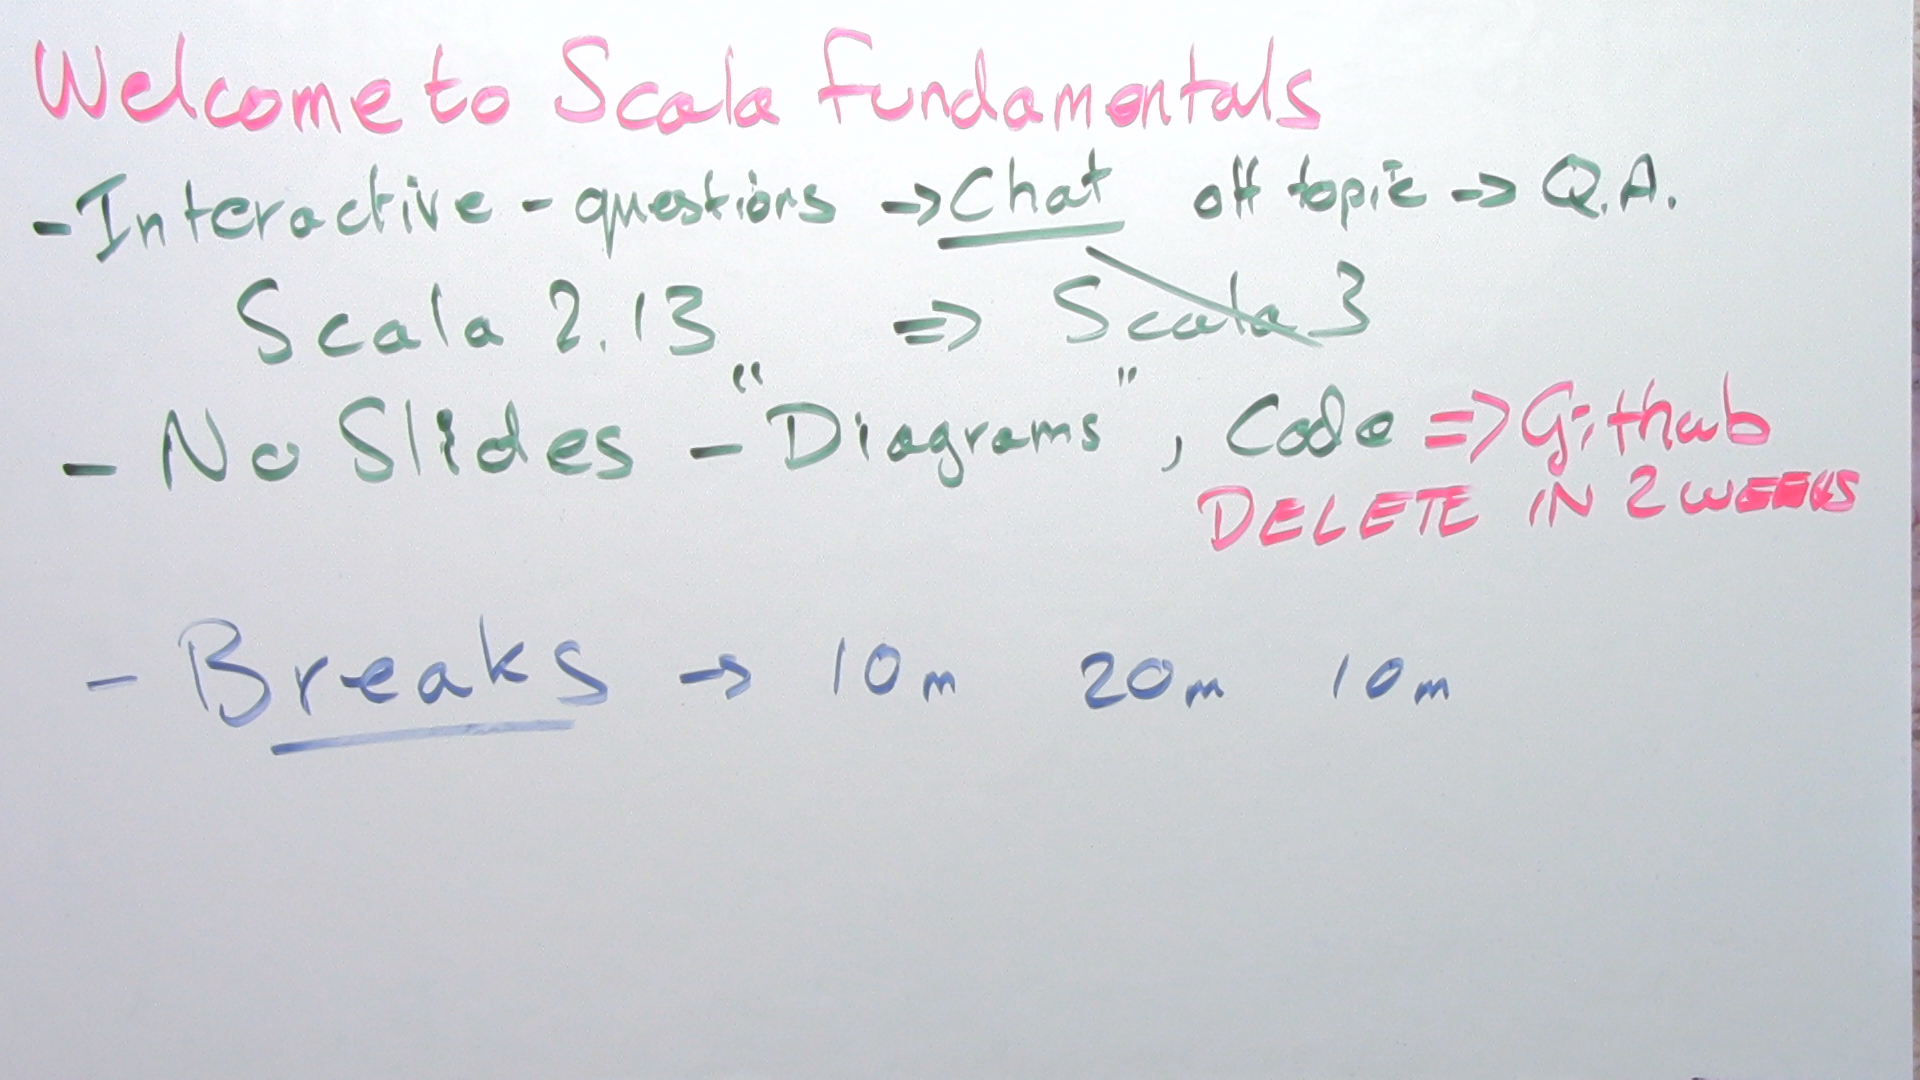 Welcome to Scala Fundamentals
- Interactive - questions -> Chat off topic -> Q.A.
Scala 2.13 => Scala 3
- No Slides - "Diagrams", Code => Github
DELETE IN 2 WEEKS
- Breaks -> 10m 20m 10m